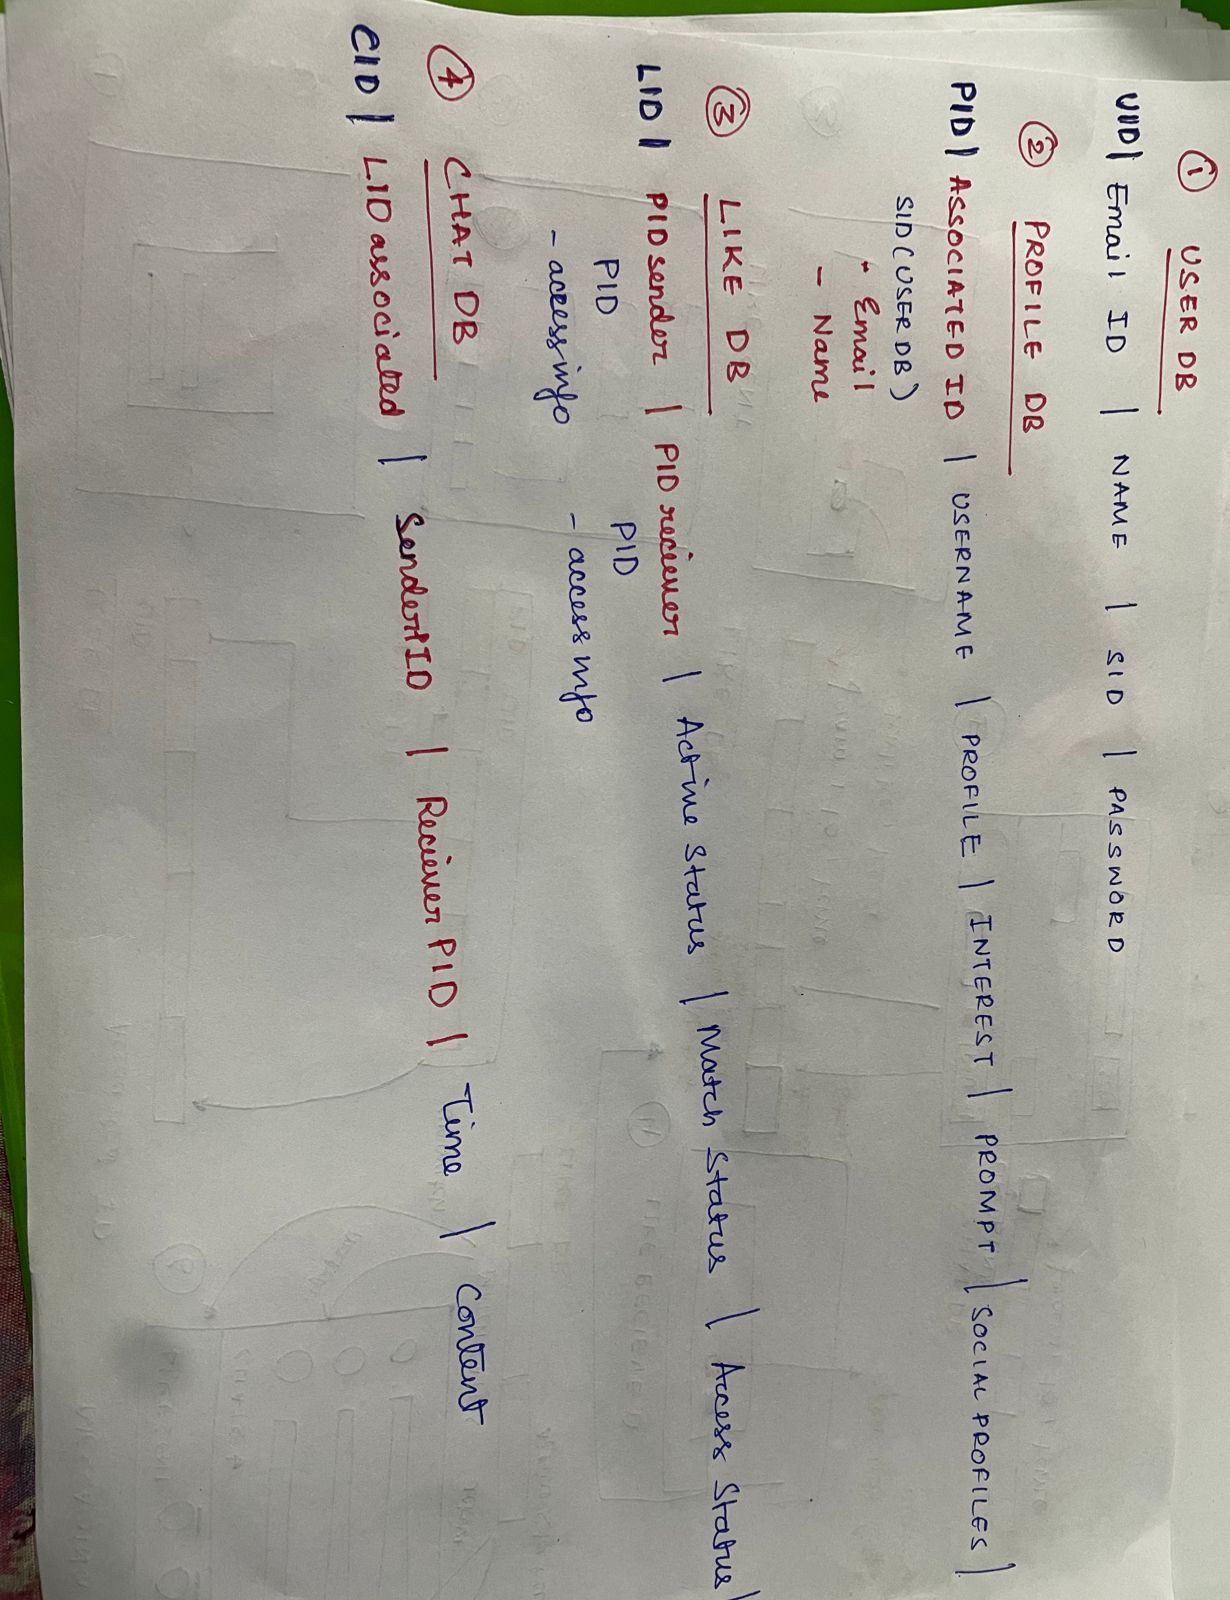 ① USER DB
UID | Email ID | NAME | SID | PASSWORD
② PROFILE DB
PID | ASSOCIATED ID | USERNAME | PROFILE | INTEREST | PROMPT | SOCIAL PROFILES |
SID (USER DB)
- Email
- Name
③ LIKE DB
LID | PID sender | PID reciever | Active Status | Match Status | Access Status |
PID PID
- access info - access info
④ CHAT DB
CID | LID associated | Sender PID | Reciever PID | Time | Content